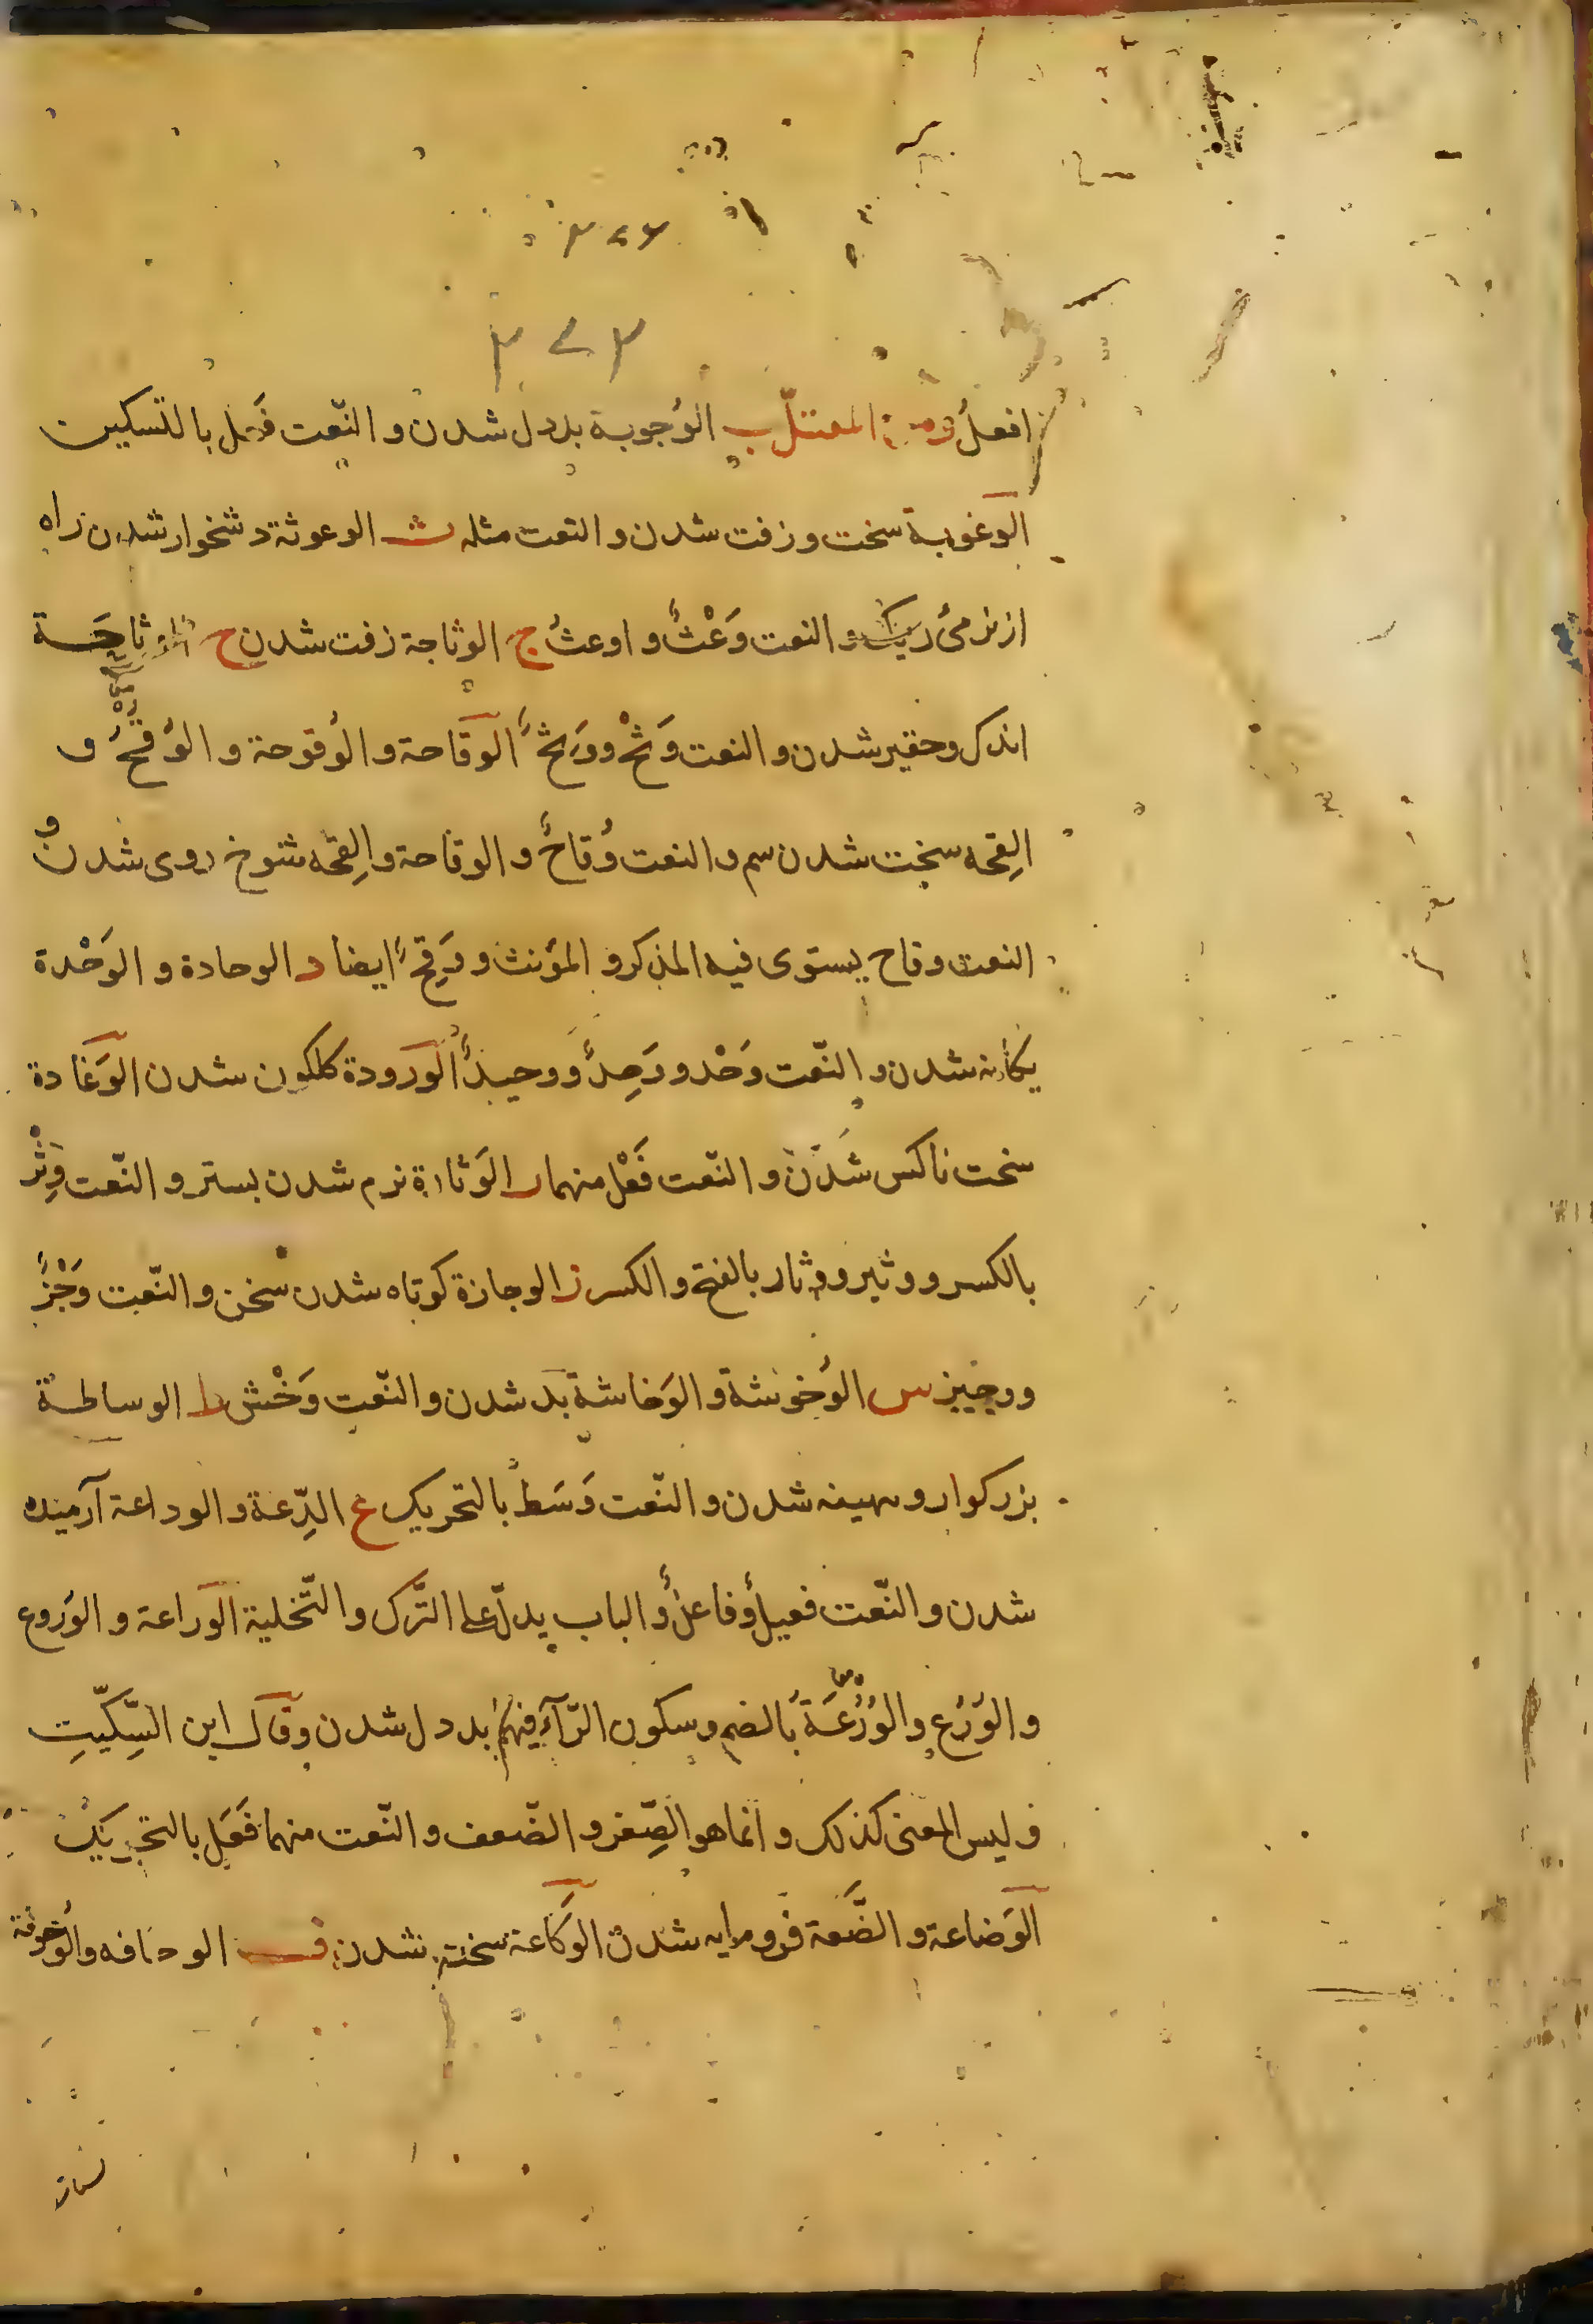 ۴۷۳
افعلُ ومن المعتلّ ب الوُجوبة بددل شدن و النّعت فَعل بالتسكين
الوغوبة سخت و زفت شدن و النعت مثله ث الوعوثة دشخوار شدن راه
از نرمیٔ ریک و النعت وَعْثٌ و اوعثُ ج الوثاجة زفت شدن ح
اندک و حقیر شدن و النعت وَتْحٌ ووَتِحٌ الوقاحة و الوُقوحة و الوُقُحُ و
القِحه سخت شدن سم و النعت وُقاحٌ و الوقاحة و القِحّه شوخ روی شدن و
النعت وقاح یستوی فیه المذکر و المؤنث و وَقِحٌ ایضا د الوحادة و الوَحْدة
یکانه شدن و النّعت وَحْد و وَحِدٌ و وحیدٌ الوُرودة کلکون شدن الوَغادة
سخت ناکس شدن و النّعت فَعْل منهما ر الوَثارة نرم شدن بستر و النّعت وِثْر
بالکسر و وثیر و وثار بالفتح و الکسر ز الوجازة کوتاه شدن سخن و النّعت وَجْزٌ
و وجیز س الوُخوشة و الوَخاشة بد شدن و النّعت وَخْش ط الوساطة
بزرکوار و مهینه شدن و النّعت وَسَط بالتحریک ع الدِّعة و الوداعة آرمیده
شدن و النّعت فعیلٌ و فاعلٌ و الباب یدلّ علی التَّرک و التّخلیة الوَراعة و الوُروع
و الوُرُع و الوُرْعَةُ بالضم و سکون الرّآءِ فیهما بددل شدن و قال ابن السِّکّیتِ
و لیس المعنی کذلک و انما هو الصِّغر و الضّعف و النّعت منهما فَعَل بالتحریک
الوَضاعة و الضَّعة فرومایه شدن الوَکاعة سخت شدن ف الوحافه والوُحوفة